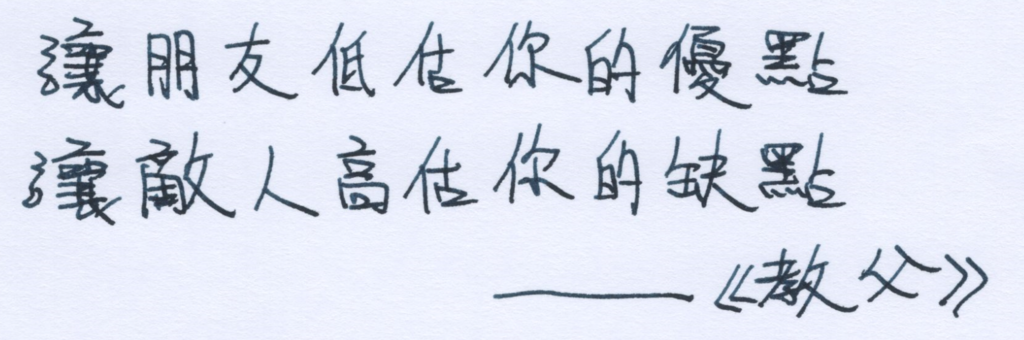 讓朋友低估你的優點
讓敵人高估你的缺點
——《教父》